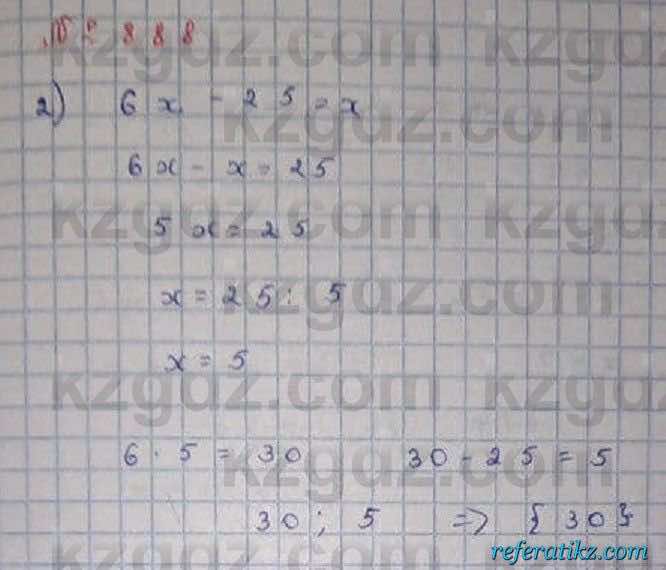 № 888
2) 6x - 25 = x
6x - x = 25
5x = 25
x = 25 : 5
x = 5
6 · 5 = 30 30 - 25 = 5
30 ; 5 => {30}
kzgdz.com
kzgdz.com
kzgdz.com
kzgdz.com
kzgdz.com
kzgdz.com
kzgdz.com
referatikz.com